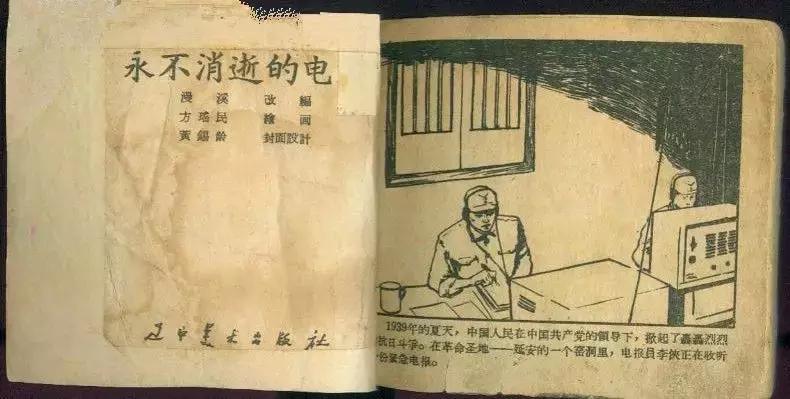 永不消逝的电
漫溪 改編
方瑤民 繪画
黃錫齡 封面設計
辽宁美术出版社
1939年的夏天，中国人民在中国共产党的領导下，掀起了轟轟烈烈
抗日斗爭。在革命圣地——延安的一个窑洞里，电报員李俠正在收听
份紧急电报。